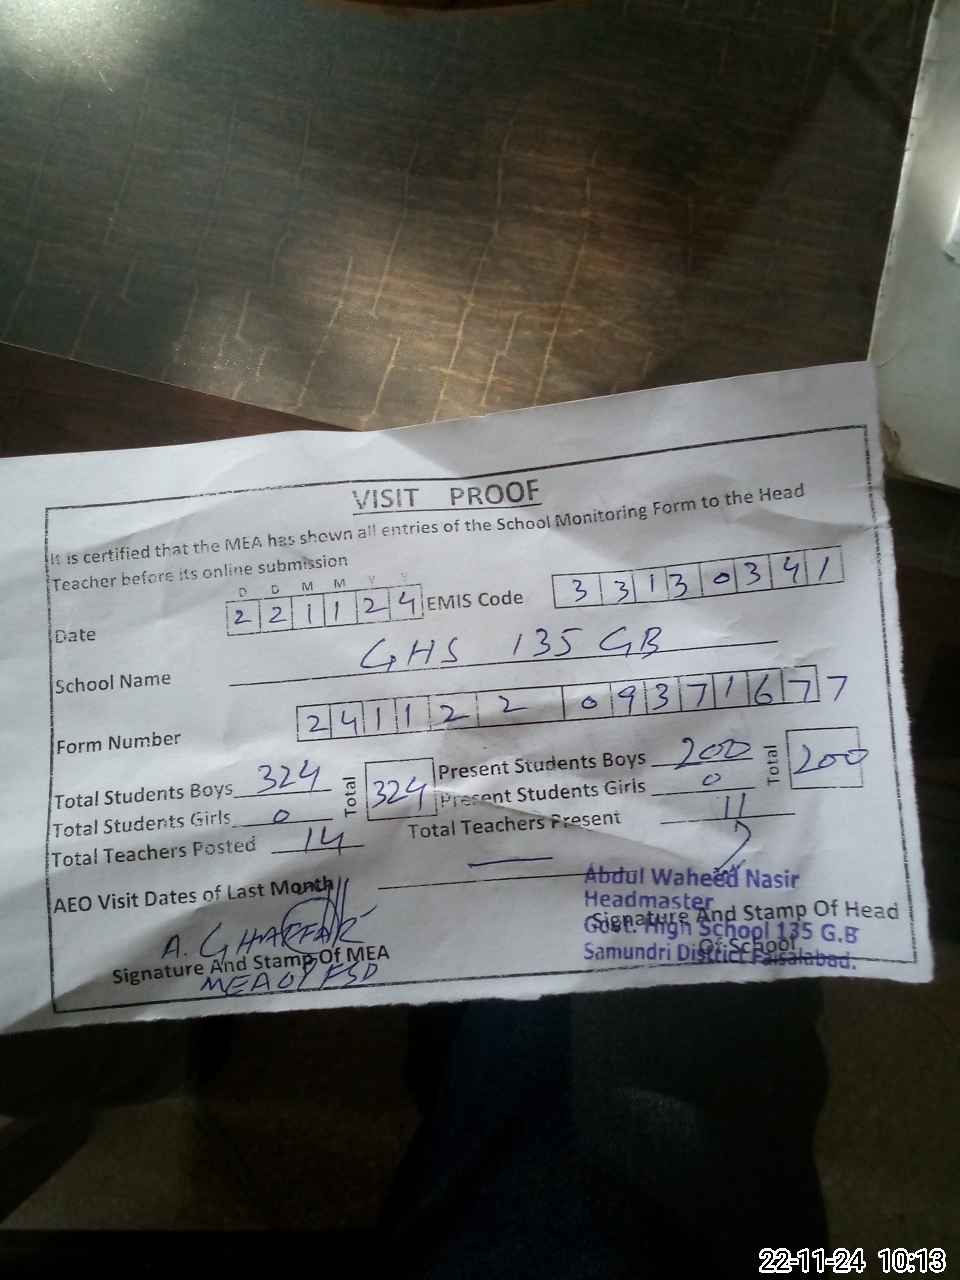 VISIT PROOF
It is certified that the MEA has shown all entries of the School Monitoring Form to the Head
Teacher before its online submission
D D M M Y Y
Date 2 2 1 1 2 4 EMIS Code 3 3 1 3 0 3 4 1
School Name GHS 135 GB
Form Number 2 4 1 1 2 2 0 9 3 7 1 6 7 7
Total Students Boys 324 Total 324 Present Students Boys 200 Total 200
Total Students Girls 0 Present Students Girls 0
Total Teachers Posted 14 Total Teachers Present 11
AEO Visit Dates of Last Month —
Abdul Waheed Nasir
Headmaster
Signature And Stamp Of Head
Govt. High School 135 G.B
Of School
Samundri District Faisalabad.
A. GHAFFAR
Signature And Stamp Of MEA
MEA 01 FSD
22-11-24 10:13